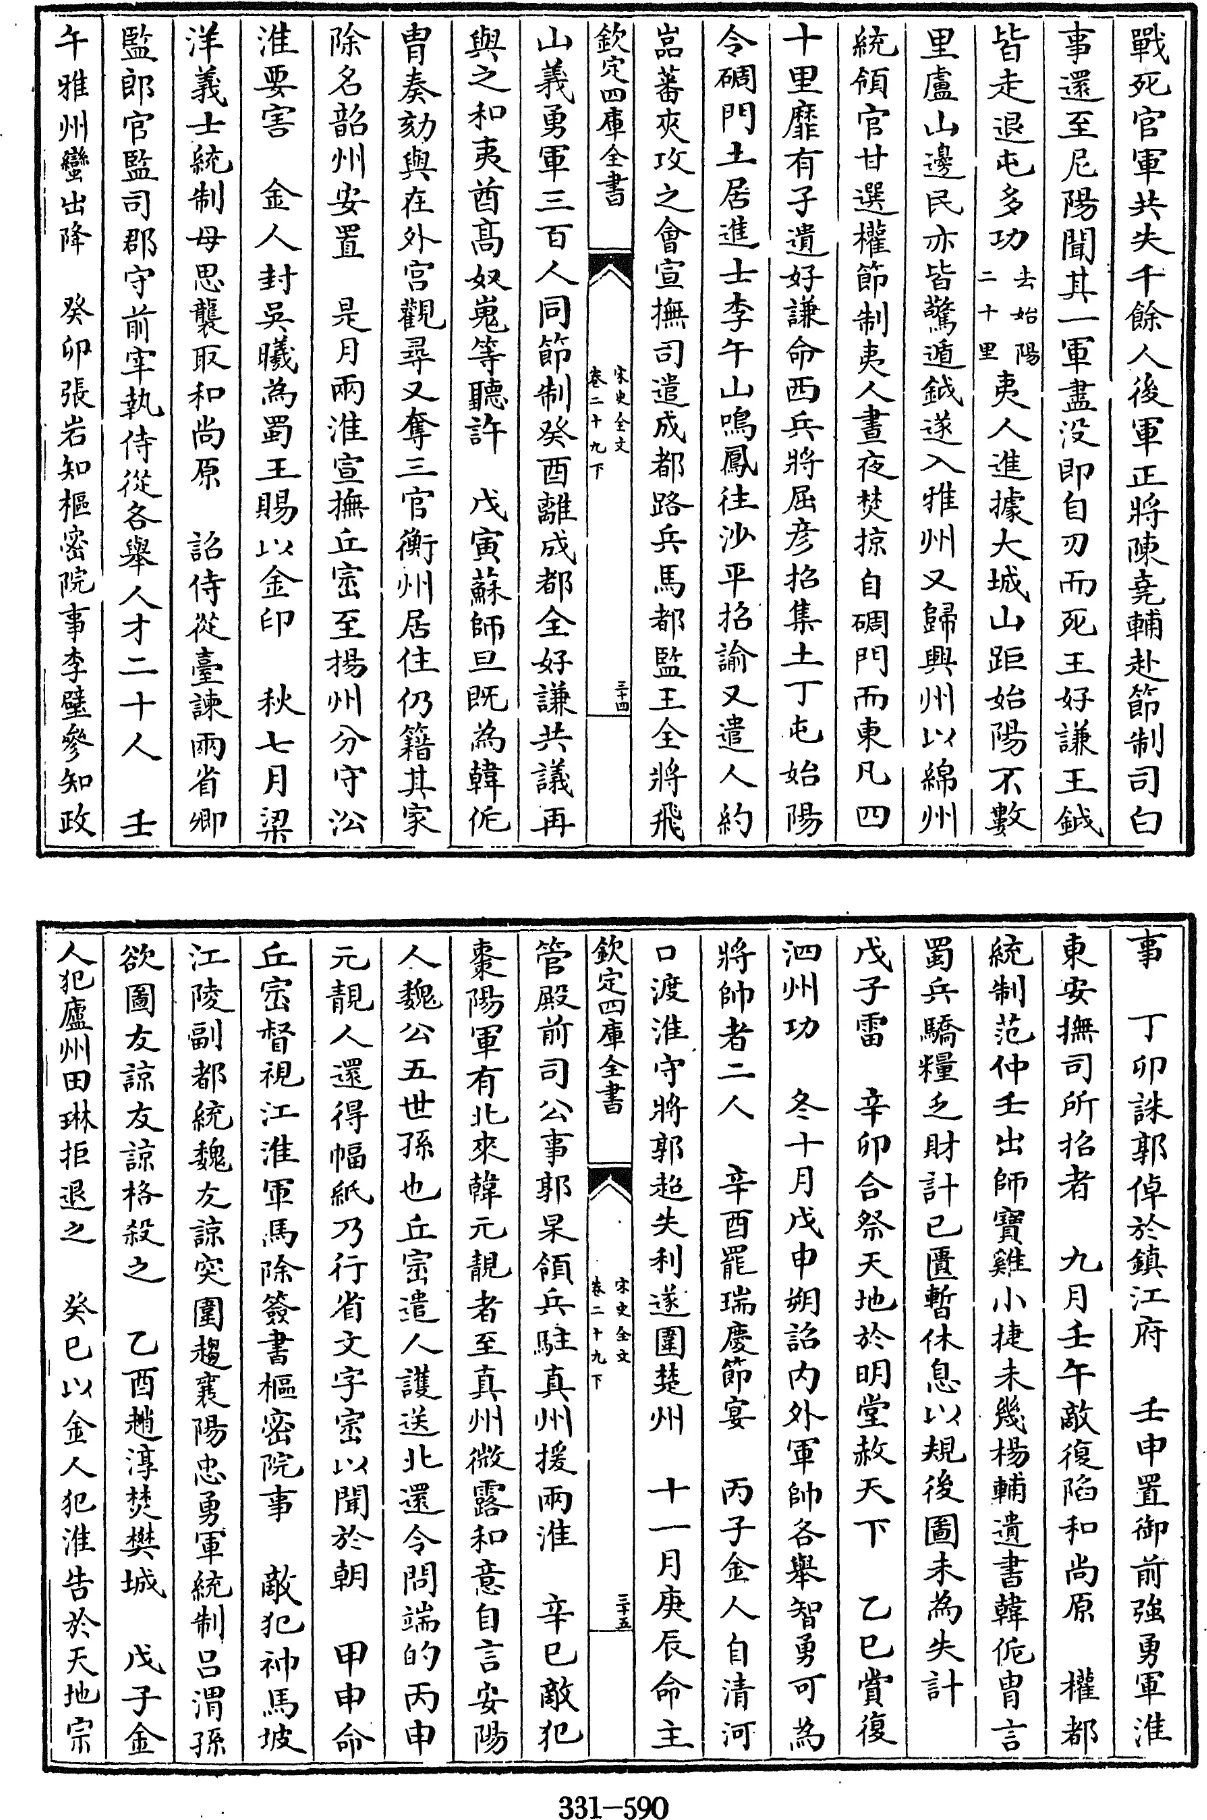 戰死官軍共失千餘人後軍正將陳堯輔赴節制司白
事還至尼陽聞其一軍盡没即自刃而死王好謙王鉞
皆走退屯多功去始陽二十里夷人進據大城山距始陽不數
里盧山邊民亦皆驚遁鉞遂入雅州又歸興州以綿州
統領官甘選權節制夷人晝夜焚掠自碉門而東凡四
十里靡有孑遺好謙命西兵將屈彦招集土丁屯始陽
令碉門土居進士李午山鳴鳳往沙平招諭又遣人約
嵓蕃夾攻之會宣撫司遣成都路兵馬都監王全將飛
欽定四庫全書
宋史全文
卷二十九下
三十四
山義勇軍三百人同節制癸酉離成都全好謙共議再
與之和夷酋髙奴嵬等聽許　戊寅蘇師旦既為韓侂
胄奏劾與在外宫觀尋又奪三官衡州居住仍籍其家
除名韶州安置　是月兩淮宣撫丘崈至揚州分守㳂
淮要害　金人封吳曦為蜀王賜以金印　秋七月梁
洋義士統制毋思襲取和尚原　詔侍從臺諫兩省卿
監郎官監司郡守前宰執侍從各舉人才二十人　壬
午雅州蠻出降　癸卯張岩知樞密院事李壁參知政
事　丁卯誅郭倬於鎮江府　壬申置御前強勇軍淮
東安撫司所招者　九月壬午敵復陷和尚原　權都
統制范仲壬出師寶雞小捷未幾楊輔遺書韓侂胄言
蜀兵驕糧乏財計已匱暫休息以規後圖未為失計
戊子雷　辛卯合祭天地於明堂赦天下　乙巳賞復
泗州功　冬十月戊申朔詔内外軍帥各舉智勇可為
將帥者二人　辛酉罷瑞慶節宴　丙子金人自清河
口渡淮守將郭超失利遂圍楚州　十一月庚辰命主
欽定四庫全書
宋史全文
卷二十九下
三十五
管殿前司公事郭杲領兵駐真州援兩淮　辛巳敵犯
棗陽軍有北來韓元靚者至真州微露和意自言安陽
人魏公五世孫也丘崈遣人護送北還令問端的丙申
元靚人還得幅紙乃行省文字崈以聞於朝　甲申命
丘崈督視江淮軍馬除簽書樞密院事　敵犯神馬坡
江陵副都統魏友諒突圍趨襄陽忠勇軍統制吕渭孫
欲圖友諒友諒格殺之　乙酉趙淳焚樊城　戊子金
人犯廬州田琳拒退之　癸巳以金人犯淮告於天地宗
331-590